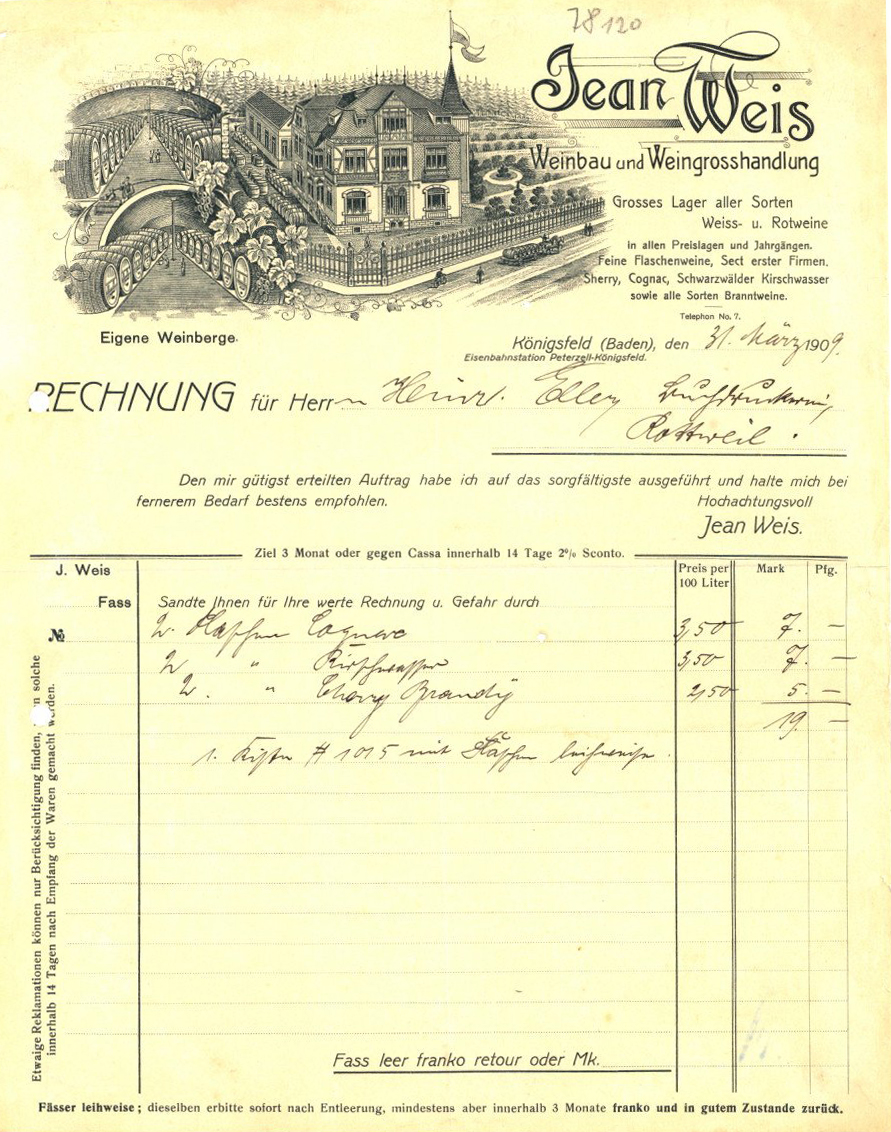 78120
Jean Weis
Weinbau und Weingrosshandlung
Grosses Lager aller Sorten
Weiss- u. Rotweine
in allen Preislagen und Jahrgängen.
Feine Flaschenweine, Sect erster Firmen,
Sherry, Cognac, Schwarzwälder Kirschwasser
sowie alle Sorten Branntweine.
Telephon No. 7.
Eigene Weinberge.
Königsfeld (Baden), den 31. März 1909.
Eisenbahnstation Peterzell-Königsfeld.
RECHNUNG für Herrn Heinr. Buchdruckerei,
Rottweil.
Den mir gütigst erteilten Auftrag habe ich auf das sorgfältigste ausgeführt und halte mich bei
fernerem Bedarf bestens empfohlen. Hochachtungsvoll
Jean Weis.
Ziel 3 Monat oder gegen Cassa innerhalb 14 Tage 2% Sconto.
J. Weis Preis per 100 Liter Mark Pfg.
Fass Sandte Ihnen für Ihre werte Rechnung u. Gefahr durch
№ 2 Flaschen Cognac 3,50 7. —
2 " Kirschwasser 3,50 7. —
2. " Cherry Brandy 2,50 5. —
19. —
1. Kiste # 1015 mit Flaschen leihweise.
Etwaige Reklamationen können nur Berücksichtigung finden, solche
innerhalb 14 Tagen nach Empfang der Waren gemacht werden.
Fass leer franko retour oder Mk.
Fässer leihweise; dieselben erbitte sofort nach Entleerung, mindestens aber innerhalb 3 Monate franko und in gutem Zustande zurück.